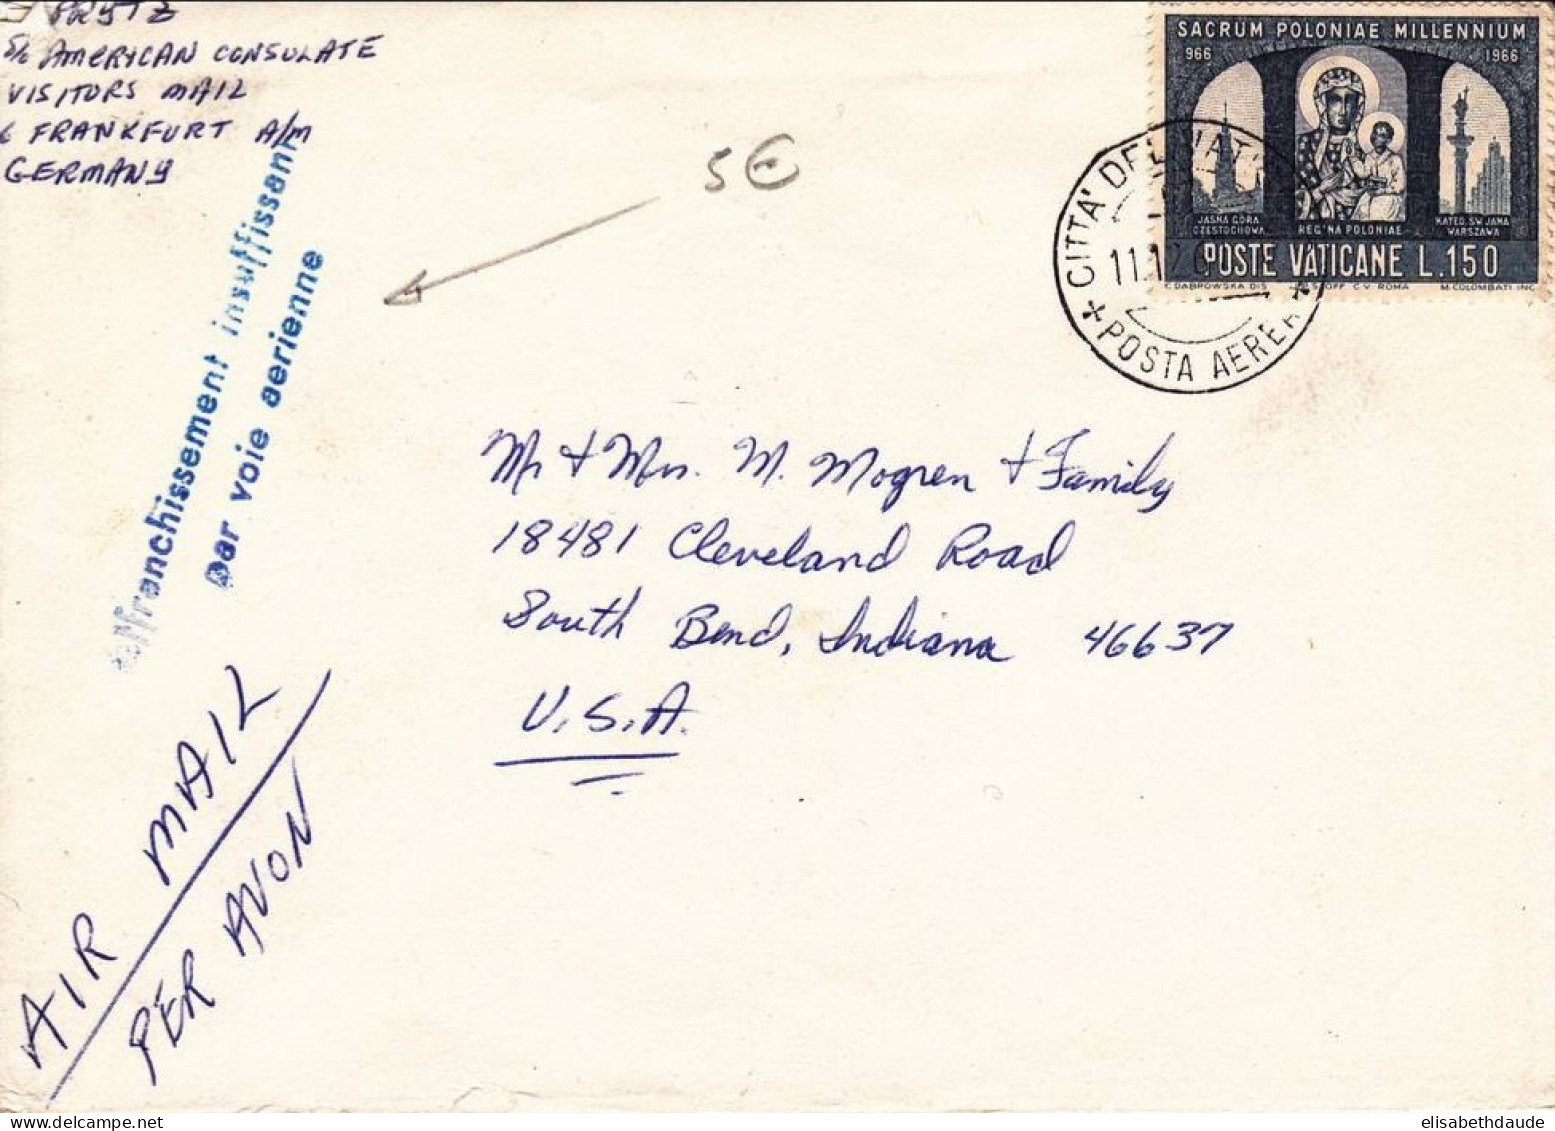 PRYTZ
c/o AMERICAN CONSULATE
VISITORS MAIL
6 FRANKFURT A/M
GERMANY
affranchissement insuffisant
par voie aerienne
5€
SACRUM POLONIAE MILLENNIUM
966 1966
JASNA GÓRA
CZĘSTOCHOWA
REGINA POLONIAE
KATED. ŚW. JANA
WARSZAWA
POSTE VATICANE L.150
C. DABROWSKA DIS
OFF. C.V. ROMA
M. COLOMBATI INC.
CITTA' DEL VAT
11.12.6
POSTA AEREA
Mr + Mrs. M. Mogren + Family
18481 Cleveland Road
South Bend, Indiana 46637
U.S.A.
AIR MAIL
PER AVON
elisabethdaude